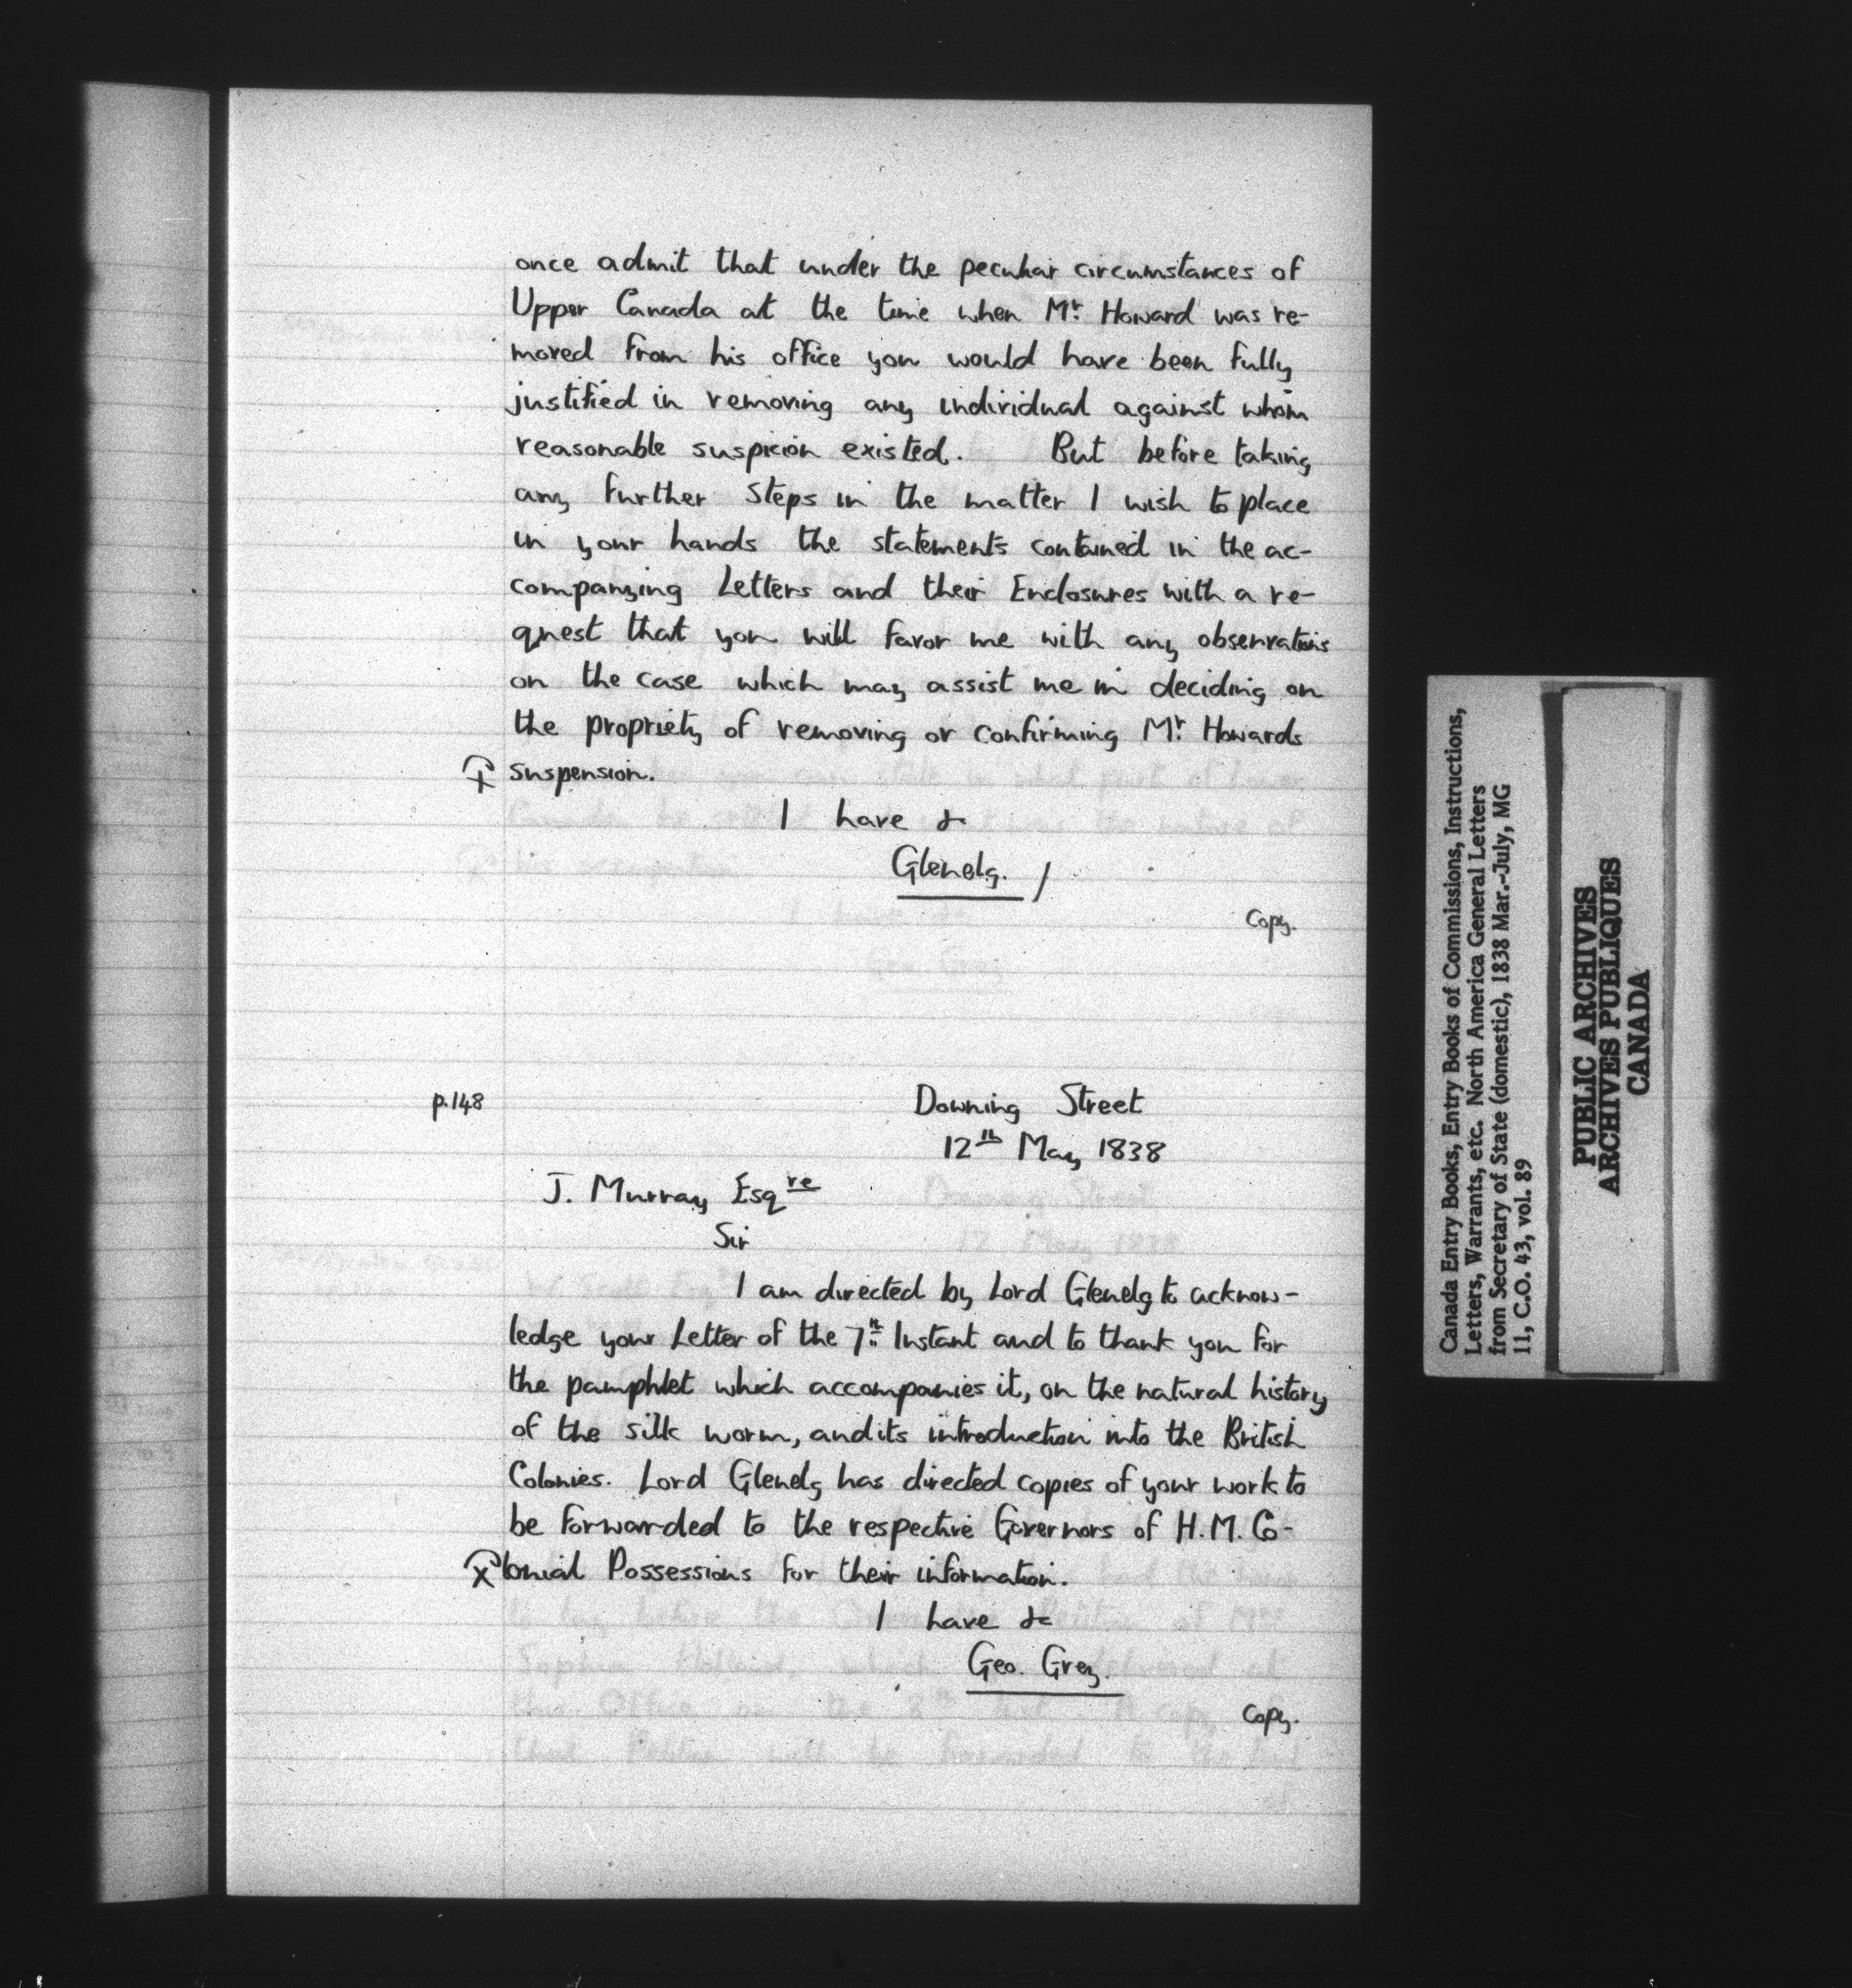 once admit that under the peculiar circumstances of
Upper Canada at the time when Mr. Howard was re-
moved from his office you would have been fully
justified in removing any individual against whom
reasonable suspicion existed. But before taking
any further Steps in the matter I wish to place
in your hands the statements contained in the ac-
companying Letters and their Enclosures with a re-
quest that you will favor me with any observations
on the case which may assist me in deciding on
the propriety of removing or confirming Mr. Howards
suspension.
I have &c
Glenelg. /
Copy.
p.148
Downing Street
12th May 1838
J. Murray Esqre
Sir
I am directed by Lord Glenelg to acknow-
ledge your Letter of the 7th Instant and to thank you for
the pamphlet which accompanies it, on the natural history
of the silk worm, and its introduction into the British
Colonies. Lord Glenelg has directed copies of your work to
be forwarded to the respective Governors of H.M. Co-
lonial Possessions for their information.
I have &c
Geo. Grey.
Copy.
Canada Entry Books, Entry Books of Commissions, Instructions,
Letters, Warrants, etc. North America General Letters
from Secretary of State (domestic), 1838 Mar.-July, MG
11, C.O. 43, vol. 89
PUBLIC ARCHIVES
ARCHIVES PUBLIQUES
CANADA